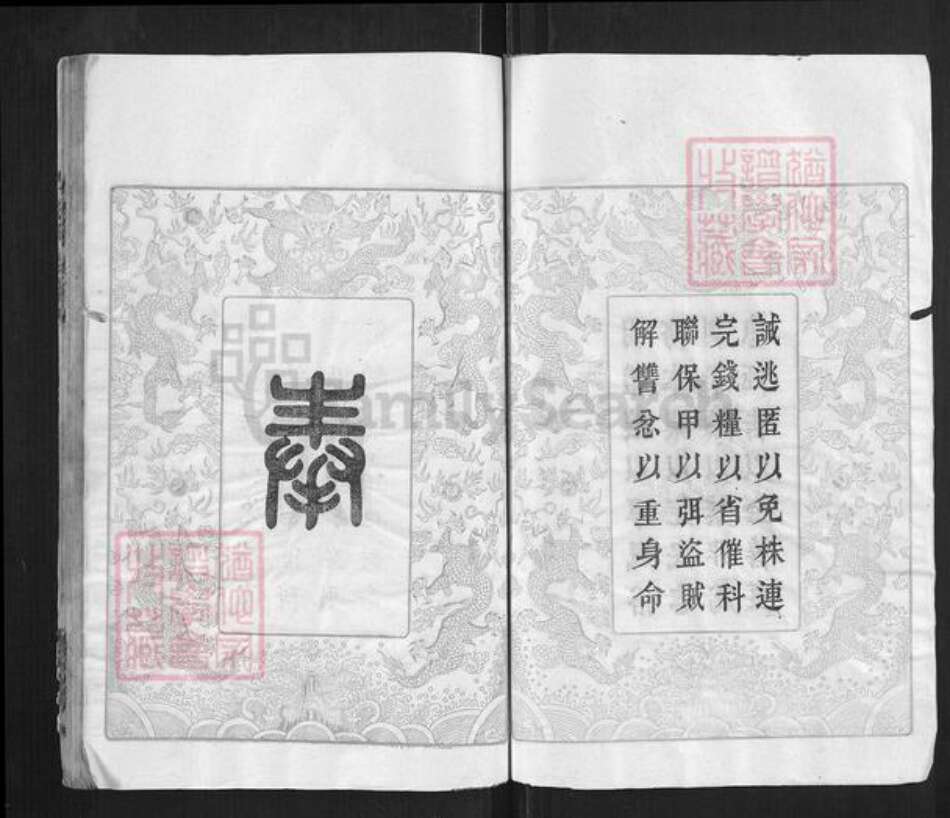 誠逃匿以免株連
完錢糧以省催科
聯保甲以弭盜賊
解讐忿以重身命
奉
FamilySearch